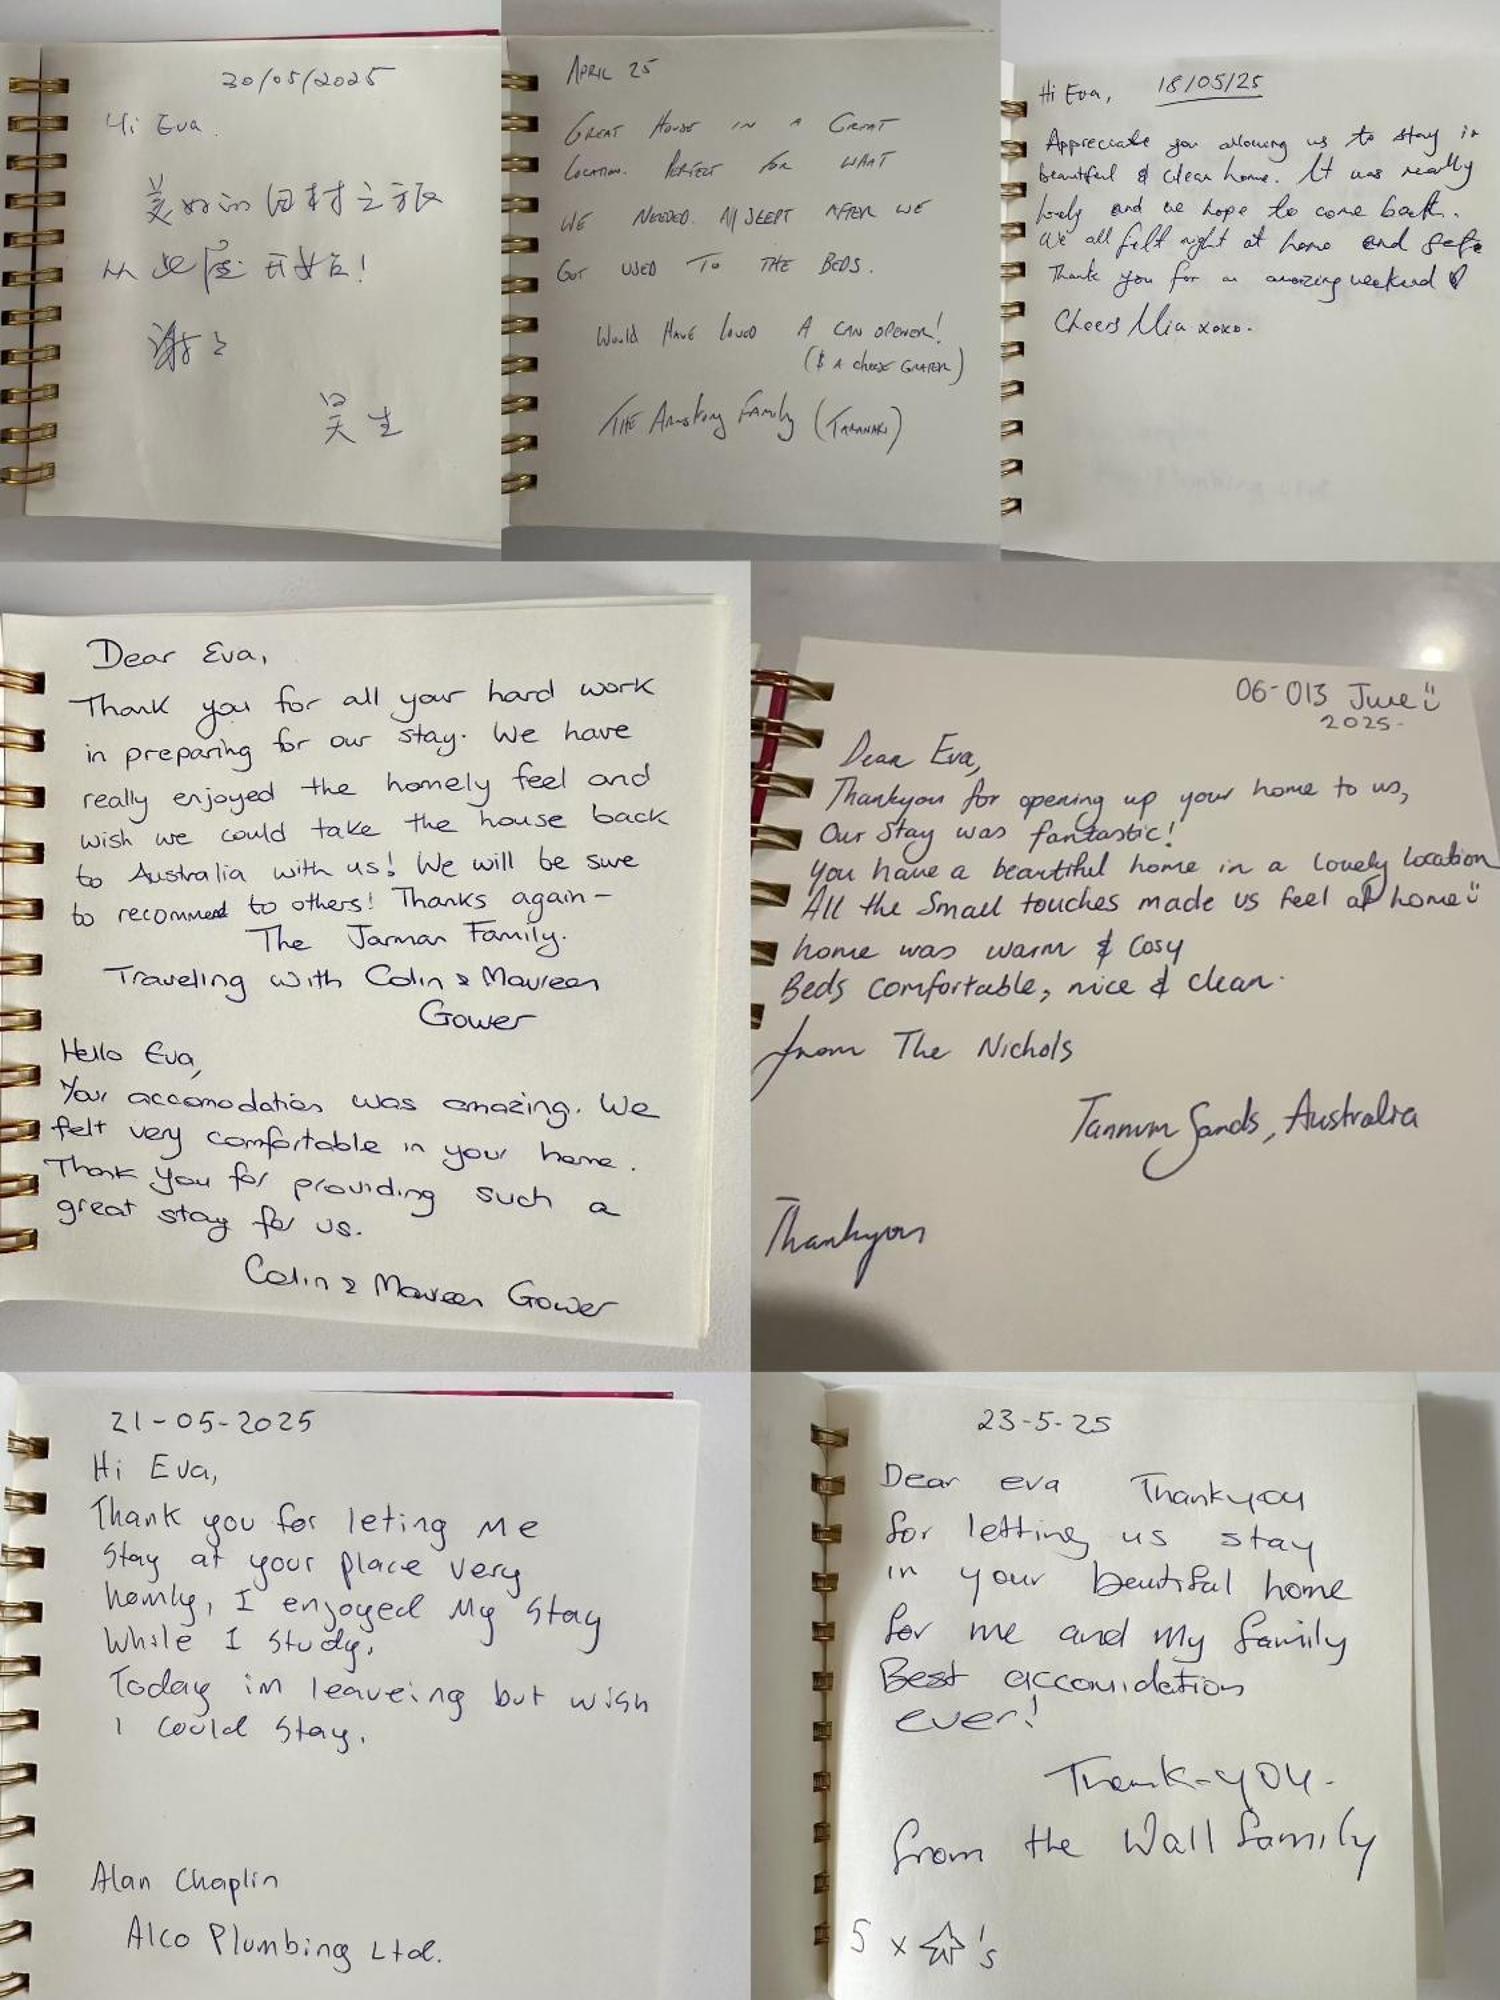 30/05/2025
Hi Eva.
美好的田村之旅
从此屋开始!
谢谢
吴生
APRIL 25
GREAT HOUSE IN A GREAT
LOCATION. PERFECT FOR WHAT
WE NEEDED. All SLEPT AFTER WE
GOT USED TO THE BEDS.
Would HAVE loved A CAN OPENER!
(& A cheese GRATER)
THE Armstrong Family (TARANAKI)
Hi Eva, 18/05/25
Appreciate you allowing us to stay in
beautiful & clean home. It was really
lovely and we hope to come back.
We all felt right at home and safe
Thank you for an amazing weekend
Cheers Mia xoxo.
Dear Eva,
Thank you for all your hard work
in preparing for our stay. We have
really enjoyed the homely feel and
wish we could take the house back
to Australia with us! We will be sure
to recommend to others! Thanks again -
The Jarman Family.
Traveling with Colin & Maureen
Gower
Hello Eva,
Your accomodation was amazing. We
felt very comfortable in your home.
Thank you for providing such a
great stay for us.
Colin & Maureen Gower
06-013 June
2025-
Dear Eva,
Thankyou for opening up your home to us,
Our Stay was fantastic!
You have a beautiful home in a lovely location
All the Small touches made us feel at home
home was warm & Cosy
Beds comfortable, nice & clean.
from The Nichols
Tannum Sands, Australia
Thankyou
21-05-2025
Hi Eva,
Thank you for leting me
Stay at your place very
homly, I enjoyed My Stay
While I Study.
Today im leaveing but wish
I could Stay.
Alan Chaplin
Alco Plumbing Ltd.
23-5-25
Dear eva Thankyou
for letting us stay
in your beutiful home
for me and My family
Best accomidation
ever!
Thank-you-
from the Wall family
5 x 's